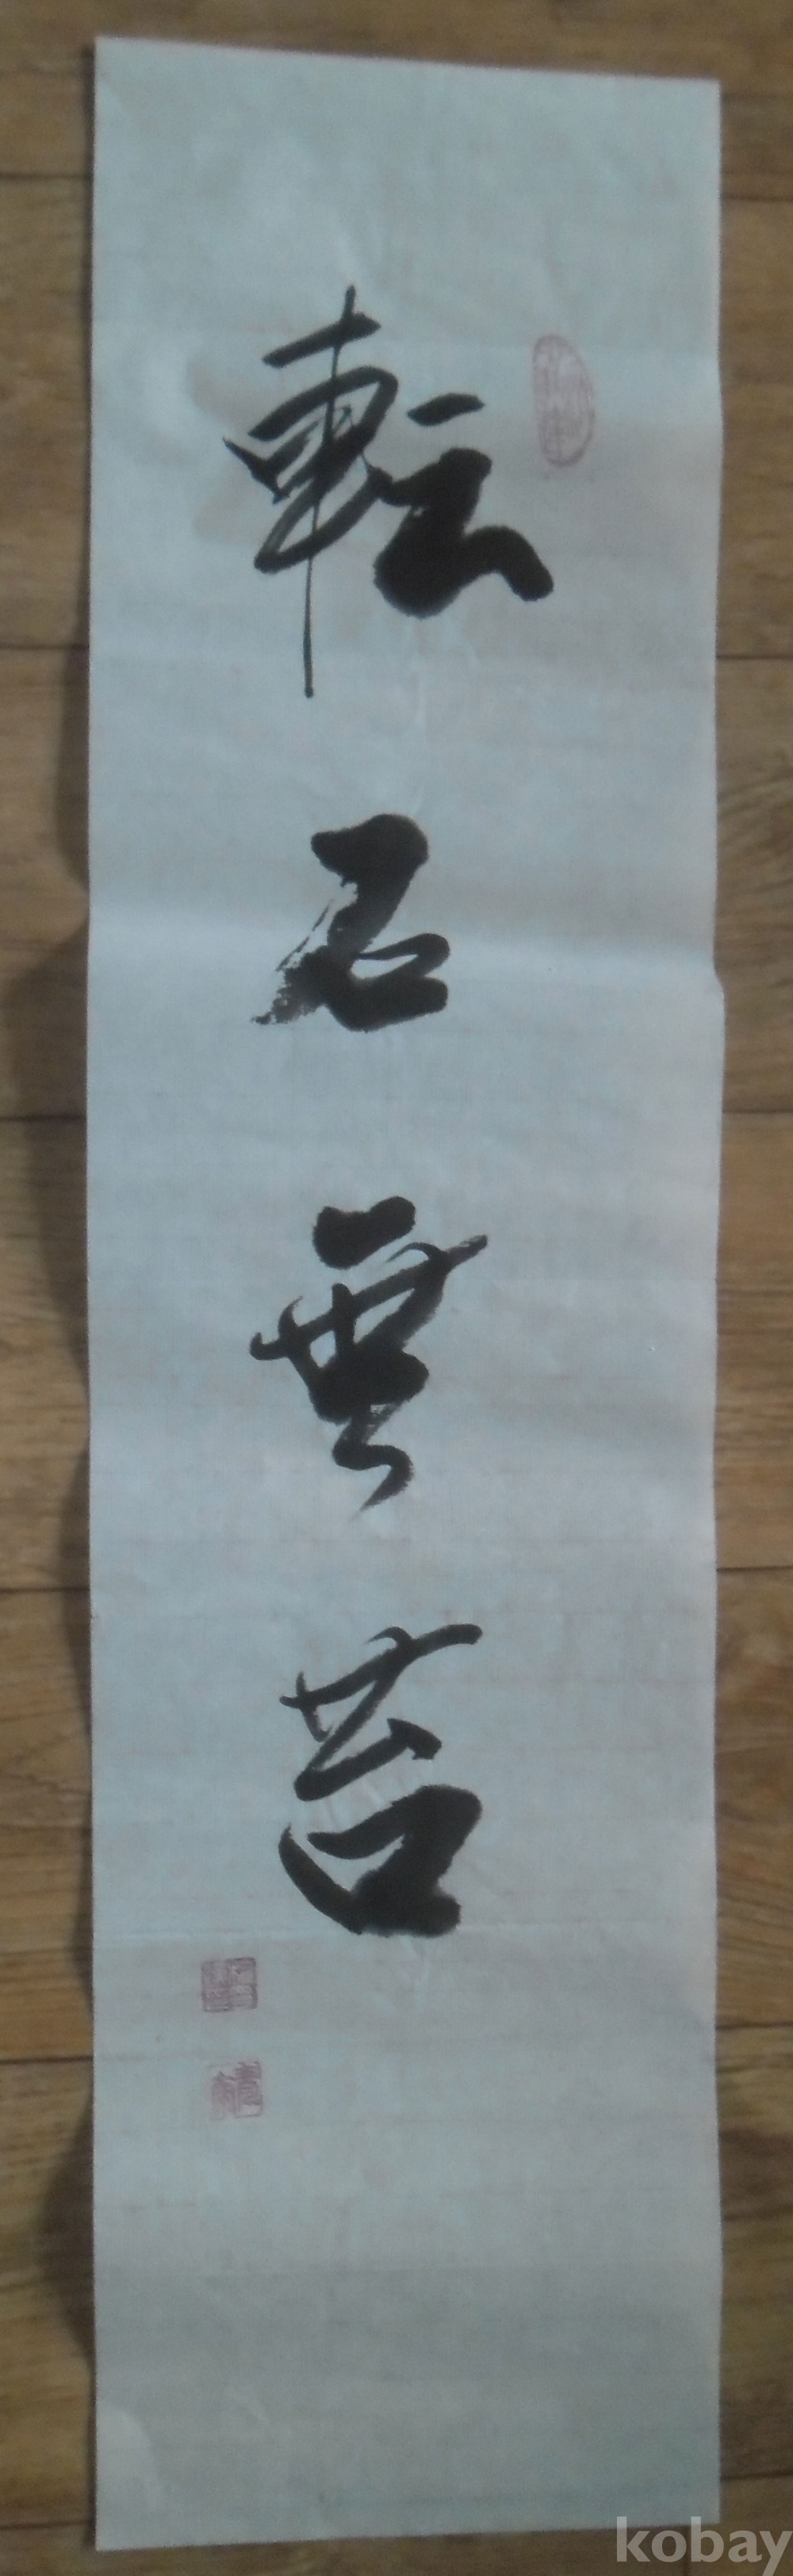 転石無苔
kobay